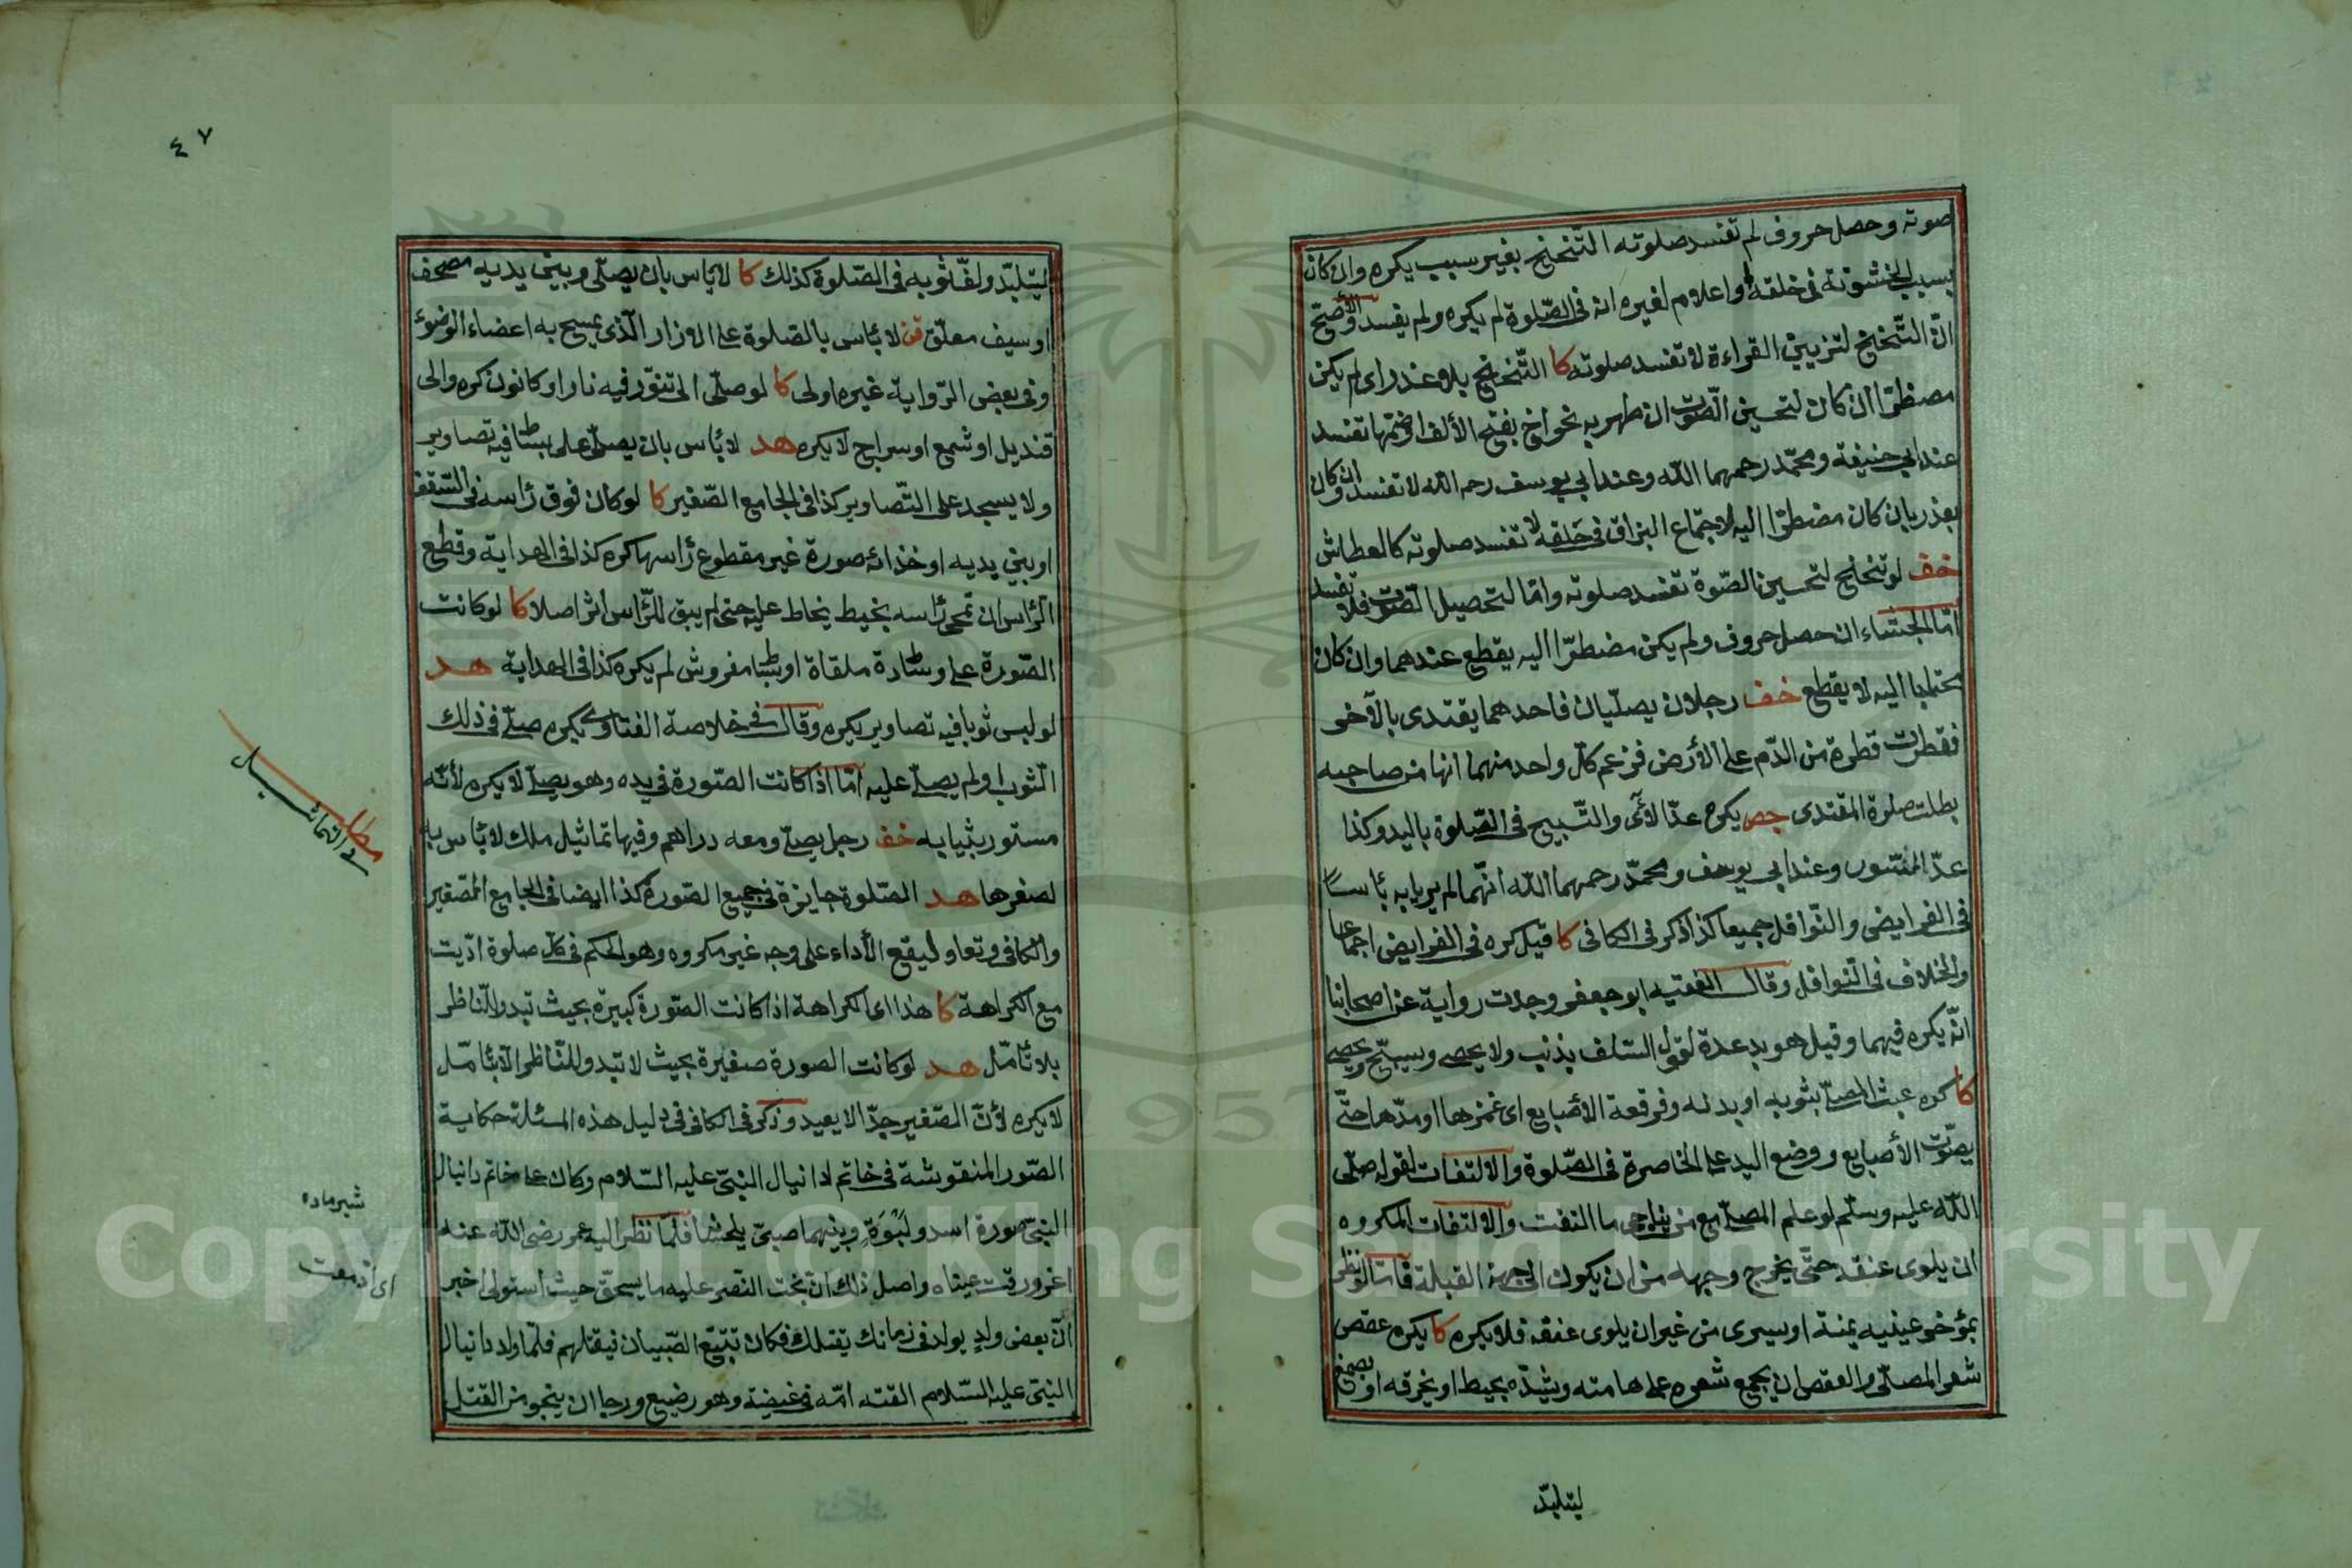 صوته وحصل حروف لم تفسد صلوته التنحنح بغير سبب يكره وان كان
بسبب الخشونة في خلقه او اعلام لغيره انه في الصّلوة لم يكره ولم يفسد والأصحّ
انّ التّنحنح لتزيين القراءة لا تفسد صلوته كا التّنحنح بلا عذر اى لم يكن
مضطرّا ان كان لتحسين الصّوت ان ظهر به نحو اخ بفتح الألف او ضمّها تفسد
عند ابي حنيفة ومحمّد رحمهما الله وعند ابي يوسف رحمه الله لا تفسد وان كان
بعذر بان كان مضطرّا اليه لاجتماع البزاق في حَلقه لا تفسد صلوته كالعطاش
خف لو تنحنح لتحسين الصّوة تفسد صلوته وامّا لتحصيل الصّوت فلا تفسد
امّا الجشاء ان حصل حروف ولم يكن مضطرّا اليه يقطع عندهما وان كان
محتاجا اليه لا يقطع خف رجلان يصلّيان فاحدهما يقتدى بالآخر
فقطرت قطرة من الدّم على الأرض فزعم كلّ واحد منهما انها من صاحبه
بطلت صلوة المقتدى جص يكره عدّ الآى والتّسبيح في الصّلوة باليد وكذا
عدّ السّور وعند ابي يوسف ومحمّد رحمهما الله انّهما لم يريا به بأسا
في الفرايض والنّوافل جميعا كذا ذكر في الكافى كا قيل كره في الفرايض اجماعا
والخلاف في النّوافل وقال الفقيه ابو جعفر وجدت رواية عن اصحابنا
انّه يكره فيهما وقيل هو بدعة لقول السّلف يذنب ولا يحصى ويسبّح ويحصى
كا كره عبث المصلّى بثوبه او بدنه وفرقعة الأصابع اى غمزها او مدّها حتّى
يصوّت الأصابع ووضع اليد على الخاصرة في الصّلوة والالتفات لقوله صلّى
الله عليه وسلّم لو علم المصلّى مع من يناجى ما التفت والالتفات المكروه
ان يلوى عنقه حتّى يخرج وجهه من ان يكون الى جهة القبلة فامّا لو نظر
بمؤخر عينيه يمنة او يسرى من غير ان يلوى عنقه فلا يكره كا يكره عقص
شعر المصلّى والعقص ان يجمع شعره على هامته ويشدّه بخيط او بخرقة او بصمغ
ليتلبّد
٤٧
ليتلبّد ولفّ ثوبه في الصّلوة كذلك كا لا بأس بان يصلّى وبين يديه مصحف
او سيف معلّق قن لا بأس بالصّلوة على الازار الّذى يمسح به اعضاء الوضوء
وفي بعض الرّواية غيره اولى كا لو صلّى الى تنوّر فيه نار او كانون كره والى
قنديل او شمع او سراج لا يكره هد لا بأس بان يصلّى على بساط فيه تصاوير
ولا يسجد على التّصاوير كذا في الجامع الصّغير كا لو كان فوق رأسه في السّقف
او بين يديه او حذائه صورة غير مقطوع رأسها كره كذا في الهداية وقطع
الرّأس ان تمحى رأسه بخيط يخاط عليه حتى لم يبق للرّأس اثر اصلا كا لو كانت
الصّورة على وسادة ملقاة او بساط مفروش لم يكره كذا في الهداية هد
لو لبس ثوبا فيه تصاوير يكره وقال في خلاصة الفتاوى يكره صلّى في ذلك
الثّوب او لم يصلّ عليه امّا اذا كانت الصّورة في يده وهو يصلّى لا يكره لأنّه
مستور بثيابه خف رجل يصلّى ومعه دراهم وفيها تماثيل ملك لا بأس به
لصغرها هد الصّلوة جايزة في جميع الصّورة كذا ايضا في الجامع الصّغير
والكافى وتعاد ليقع الأداء على وجه غير مكروه وهو الحكم في كلّ صلوة ادّيت
مع الكراهة كا هذا اى الكراهة اذا كانت الصّورة كبيرة بحيث تبدو للنّاظر
بلا تأمّل هد لو كانت الصورة صغيرة بحيث لا تبدو للنّاظر الا بتأمّل
لا يكره لأنّ الصّغير جدّا لا يعبد وذكر في الكافى في دليل هذه المسئلة حكاية
الصّور المنقوشة في خاتم دانيال النّبىّ عليه السّلام وكان على خاتم دانيال
النبىّ صورة اسد ولَبْوَة وبينهما صبىّ يلحسانه فلمّا نظر اليه عمر رضى الله عنه
اغرورقت عيناه واصل ذلك ان بخت النصر عليه ما يستحقّ حيث استولى اخبر
انّ بعض ولدٍ يولد في زمانك يقتلك فكان تتبّع الصّبيان فيقتلهم فلمّا ولد دانيال
النبىّ عليه السّلام القته امّه في غيضة وهو رضيع ورجا ان ينجو من القتل
مطلب
في التماثيل
شير ماده
اى ادمعت
Copyright © King Saud University
1957